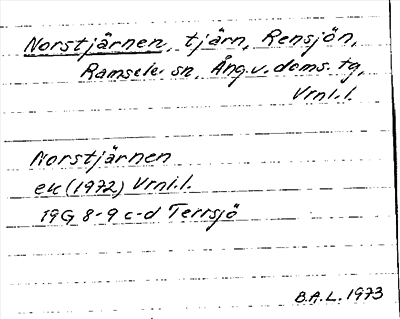 Norstjärnen, tjärn, Rensjön,
Ramsele sn, Ång.v. doms. tg,
Vrnl.l.
Norstjärnen
ek (1972) Vrnl.l.
19G 8-9 c-d Terrsjö
B.A.L. 1973